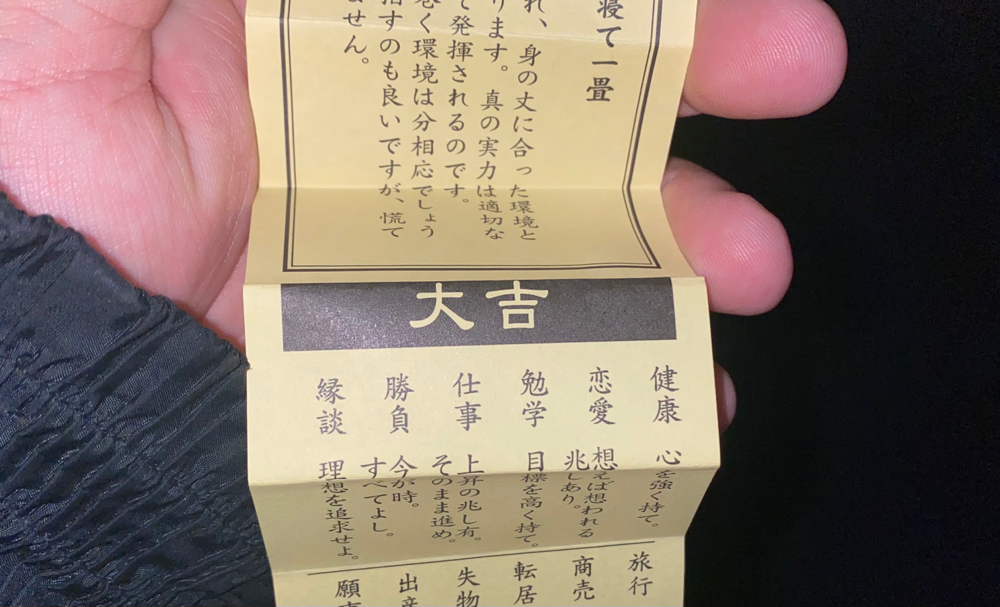 寝て一畳
れ、身の丈に合った環境と
ります。真の実力は適切な
て発揮されるのです。
巻く環境は分相応でしょう
指すのも良いですが、慌て
ません。
大吉
健康
心を強く持て。
恋愛
想えば想われる
兆しあり。
勉学
目標を高く持て。
仕事
上昇の兆し有。
そのまま進め。
勝負
今が時。
すべてよし。
縁談
理想を追求せよ。
旅行
商売
転居
失物
出産
願